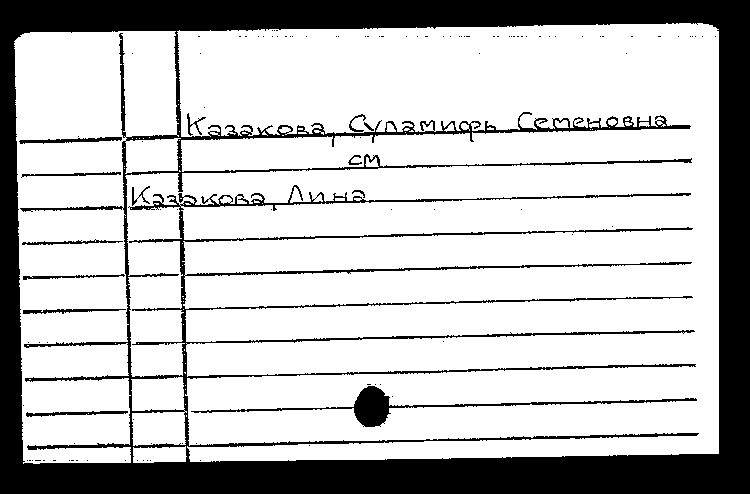 Казакова, Суламифь Семеновна
см
Казакова, Лина